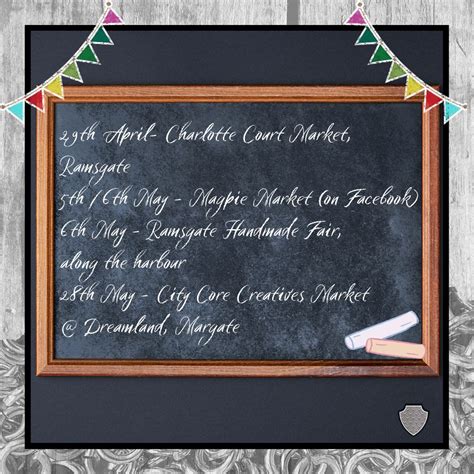 29th April- Charlotte Court Market,
Ramsgate
5th / 6th May - Magpie Market (on Facebook)
6th May - Ramsgate Handmade Fair,
along the harbour
28th May - City Core Creatives Market
@ Dreamland, Margate